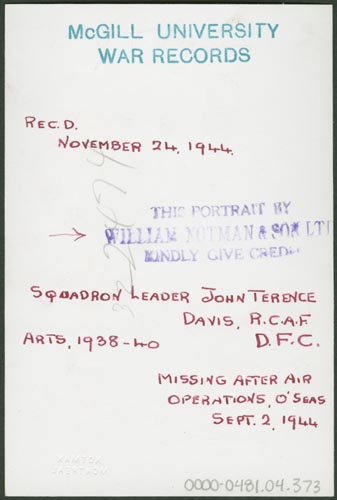 McGILL UNIVERSITY
WAR RECORDS
REC.D.
NOVEMBER 24, 1944.
THIS PORTRAIT BY
WILLIAM NOTMAN & SON LTD
KINDLY GIVE CREDIT
SQUADRON LEADER JOHN TERENCE
DAVIS, R.C.A.F.
ARTS, 1938-40 D.F.C.
MISSING AFTER AIR
OPERATIONS, O'SEAS
SEPT. 2, 1944
NOTMAN
MONTREAL
0000-0481.04.373